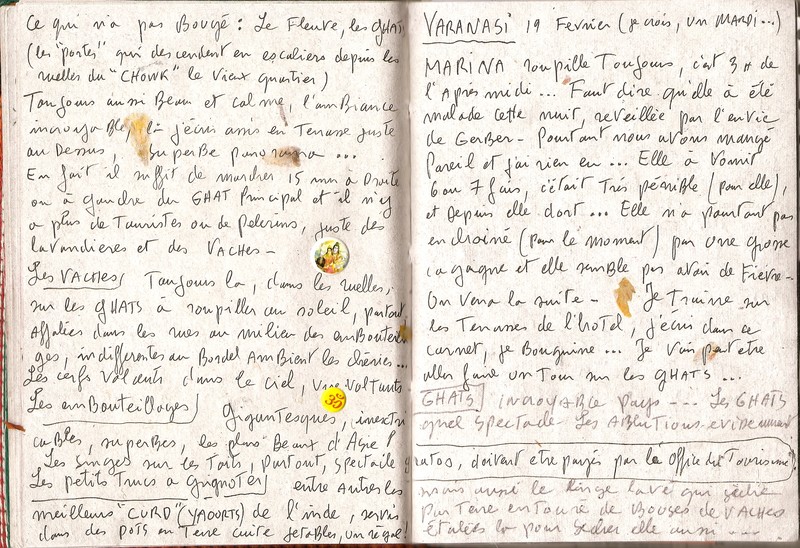 Ce qui n'a pas Bougé : Le Fleuve, les GHATS
(les "portes" qui descendent en escaliers depuis les
ruelles du "CHOWK" le vieux quartier)
Toujours aussi Beau et calme, l'amBiance
incroyaBle, là j'écris assis en Terrasse juste
au Dessus, superBe panorama ...
En fait il suffit de marcher 15 mn à Droite
ou à gauche du GHAT Principal et il n'y
a plus de Touristes ou de Pelerins, juste des
lavandieres et des VACHES -
Les VACHES Toujours là, dans les ruelles,
sur les GHATS à roupiller au soleil, partout
Affalées dans les rues au milieu des emBoutei
ges, indifferentes au Bordel AmBient les chéries...
Les cerfs Volants dans le ciel, virevoltants
Les emBouteillages Gigantesques, inextri
cables, superbes, les plus Beaux d'Asie !
Les Singes sur les Toits, partout, spectacle g
Les petits Trucs à Grignoter entre Autres les
meilleurs "CURD" (YAOURTS) de l'inde, servis
dans des POTS en Terre cuite jetables, un régal !
VARANASI 19 Fevrier (je crois, un MARDI...)
MARINA roupille Toujours, c'est 3 H de
l'Après midi ... Faut dire qu'elle à été
malade cette nuit, reveillée par l'envie
de GerBer - Pourtant nous avons mangé
Pareil et j'ai rien eu ... Elle à Vomit
6 ou 7 fois, c'était Très pénible (pour elle),
et Depuis elle dort ... Elle n'a pourtant pas
enchainé (pour le moment) par une grosse
cagagne et elle semble pas avoir de Fievre -
On Verra la suite - Je Traine sur
les Terrasses de l'hotel, j'écris dans ce
carnet, je Bouquine ... Je Vais peut etre
aller faire un Tour sur les GHATS ...
GHATS incroyaBle pays ... Les GHATS
quel Spectacle Les ABlutions evidemment
ratos, doivent etre payés par l'Office du Tourisme
mais aussi le linge lavé qui sèche
par Terre entouré de Bouses de VACHES
étalées là pour sécher elle aussi ...